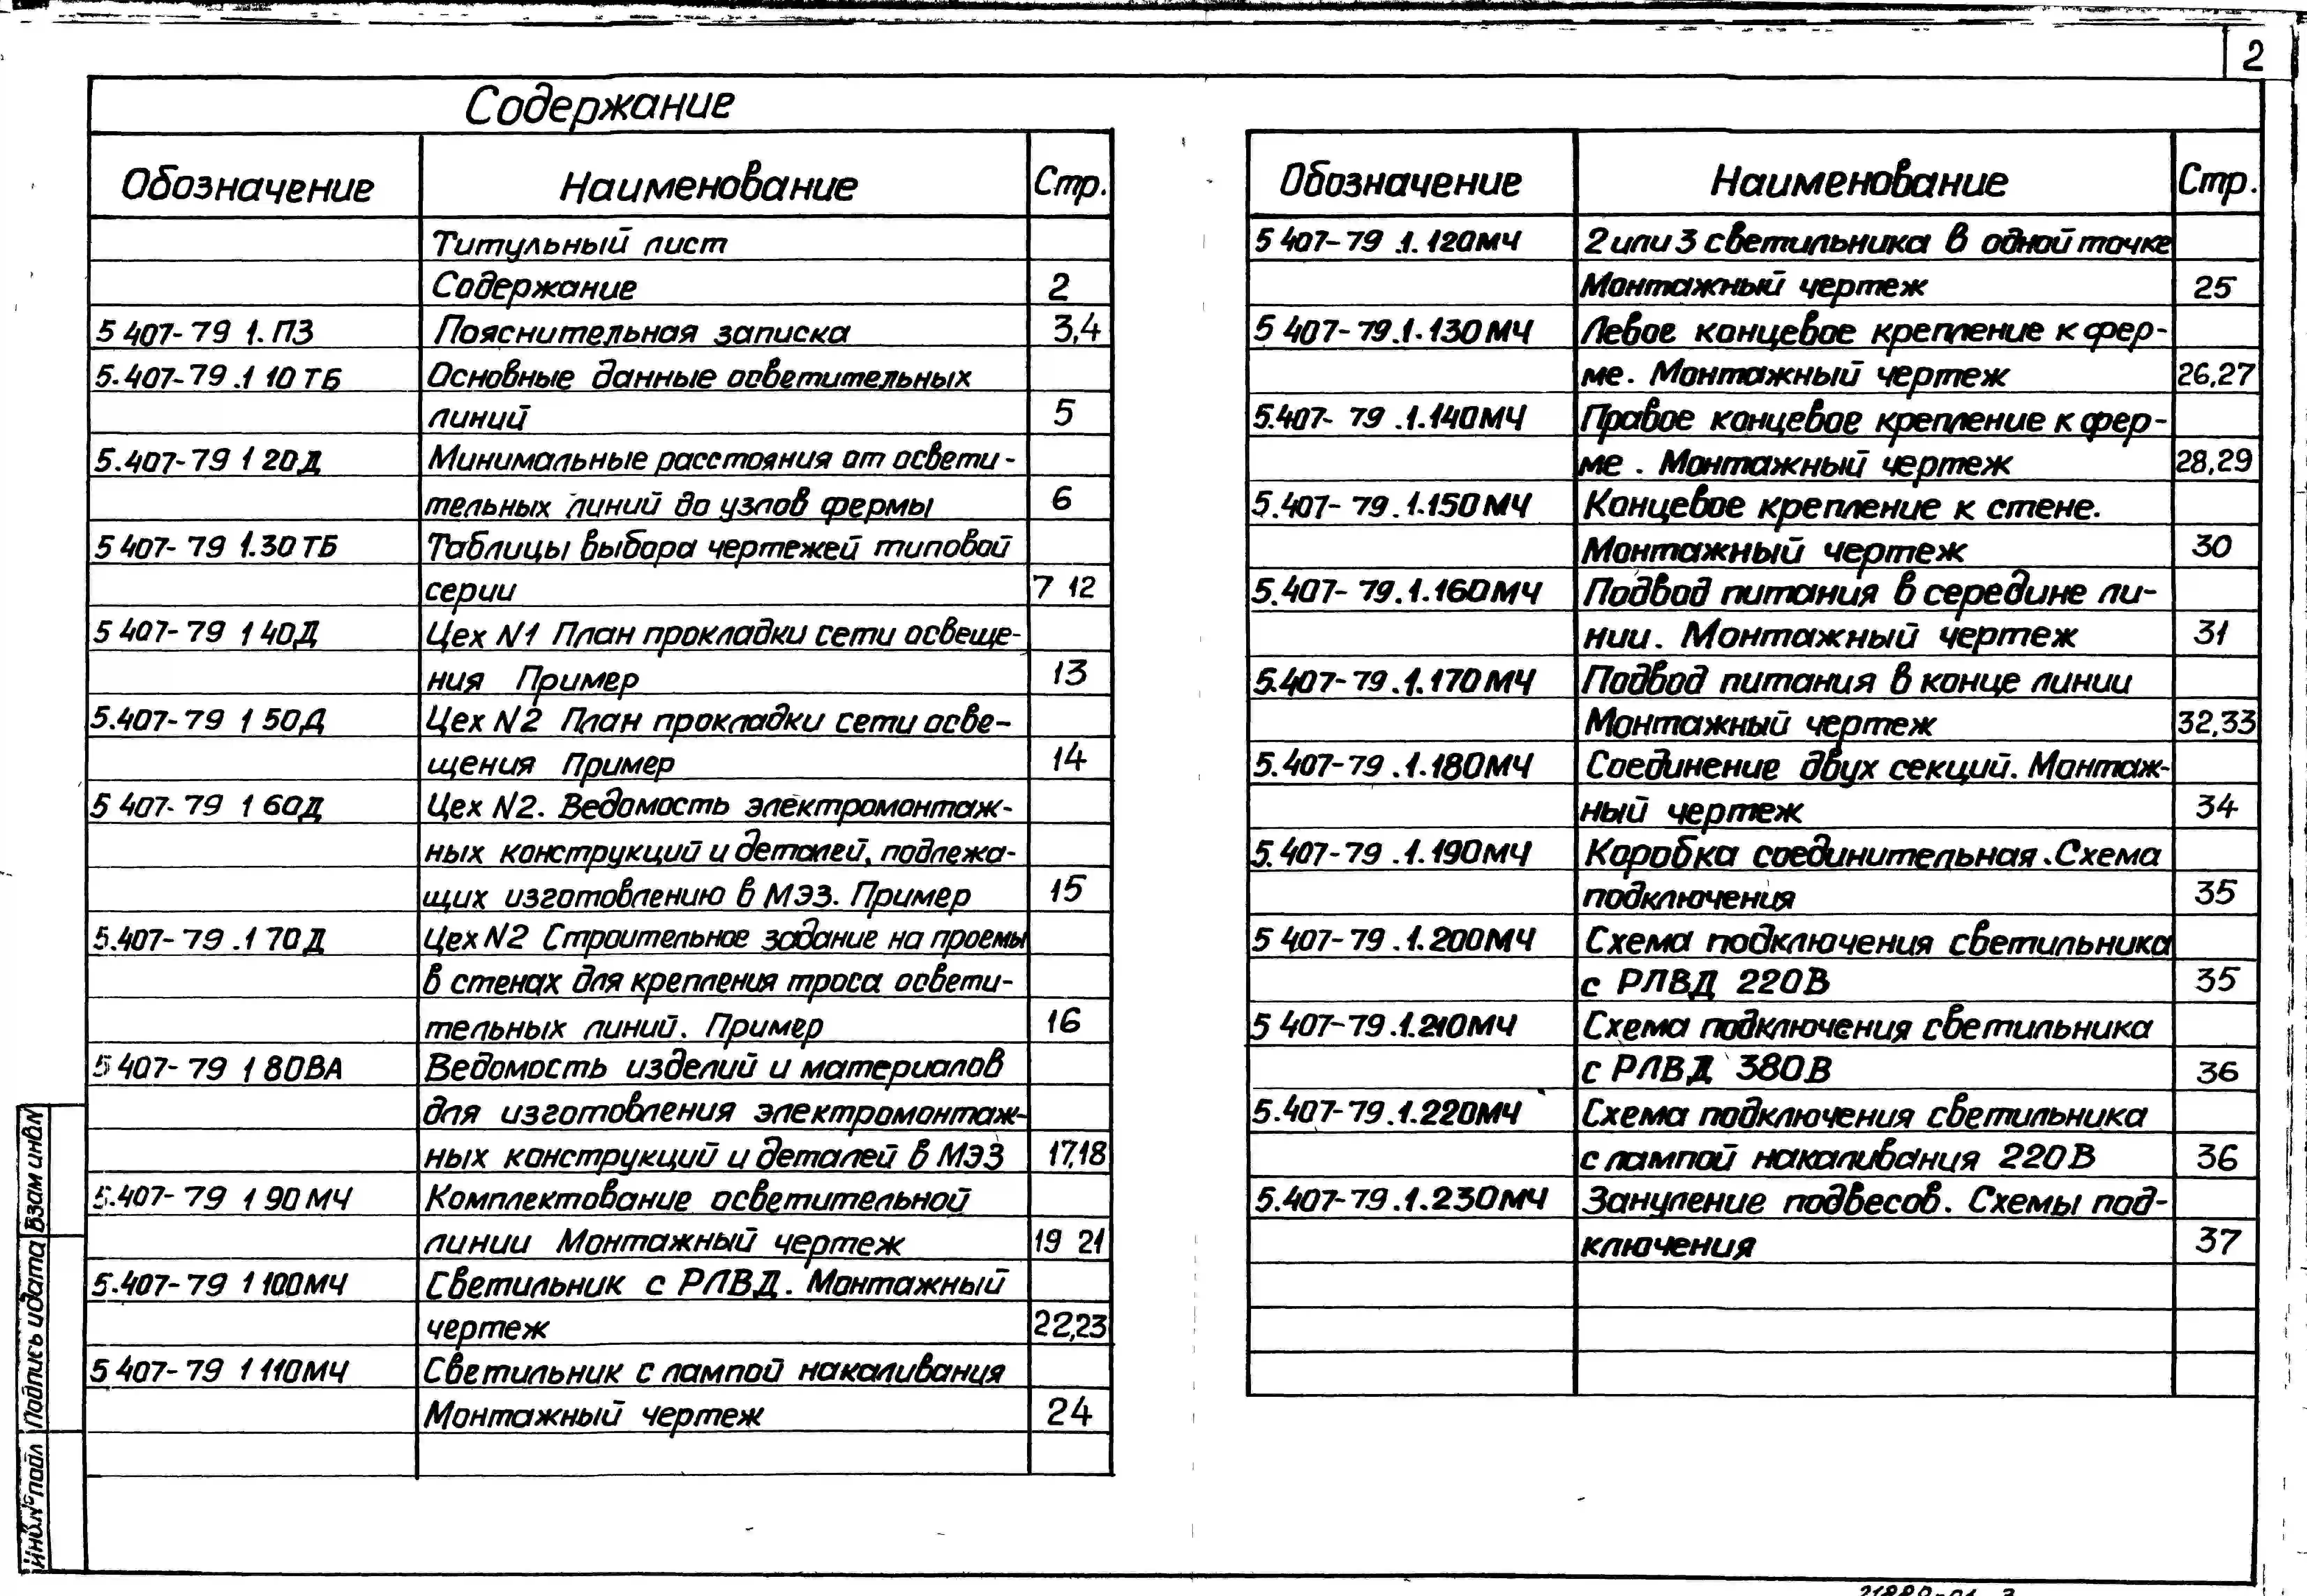 2
Содержание
Обозначение Наименование Стр.
Титульный лист
Содержание 2
5 407-79 1.ПЗ Пояснительная записка 3,4
5.407-79.1 10ТБ Основные данные осветительных
линий 5
5.407-79 1 20Д Минимальные расстояния от освети-
тельных линий до узлов фермы 6
5 407-79 1.30ТБ Таблицы выбора чертежей типовой
серии 7 12
5 407-79 1 40Д Цех N1 План прокладки сети освеще-
ния Пример 13
5.407-79 1 50Д Цех N2 План прокладки сети осве-
щения Пример 14
5 407-79 1 60Д Цех N2. Ведомость электромонтаж-
ных конструкций и деталей, подлежа-
щих изготовлению в МЭЗ. Пример 15
5.407-79.1 70Д Цех N2 Строительное задание на проемы
в стенах для крепления троса освети-
тельных линий. Пример 16
5 407-79 1 80ВА Ведомость изделий и материалов
для изготовления электромонтаж-
ных конструкций и деталей в МЭЗ 17,18
5.407-79 1 90МЧ Комплектование осветительной
линии Монтажный чертеж 19 21
5.407-79 1 100МЧ Светильник с РЛВД. Монтажный
чертеж 22,23
5 407-79 1 110МЧ Светильник с лампой накаливания
Монтажный чертеж 24
Обозначение Наименование Стр.
5 407-79.1.120МЧ 2 или 3 светильника в одной точке
Монтажный чертеж 25
5 407-79.1.130МЧ Левое концевое крепление к фер-
ме. Монтажный чертеж 26,27
5.407-79.1.140МЧ Правое концевое крепление к фер-
ме. Монтажный чертеж 28,29
5.407-79.1.150МЧ Концевое крепление к стене.
Монтажный чертеж 30
5.407-79.1.160МЧ Подвод питания в середине ли-
нии. Монтажный чертеж 31
5.407-79.1.170МЧ Подвод питания в конце линии
Монтажный чертеж 32,33
5.407-79.1.180МЧ Соединение двух секций. Монтаж-
ный чертеж 34
5.407-79.1.190МЧ Коробка соединительная. Схема
подключения 35
5 407-79.1.200МЧ Схема подключения светильника
с РЛВД 220В 35
5 407-79.1.210МЧ Схема подключения светильника
с РЛВД 380В 36
5.407-79.1.220МЧ Схема подключения светильника
с лампой накаливания 220В 36
5.407-79.1.230МЧ Зануление подвесов. Схемы под-
ключения 37
Взам инв N
Подпись и дата
Инв.№ подл